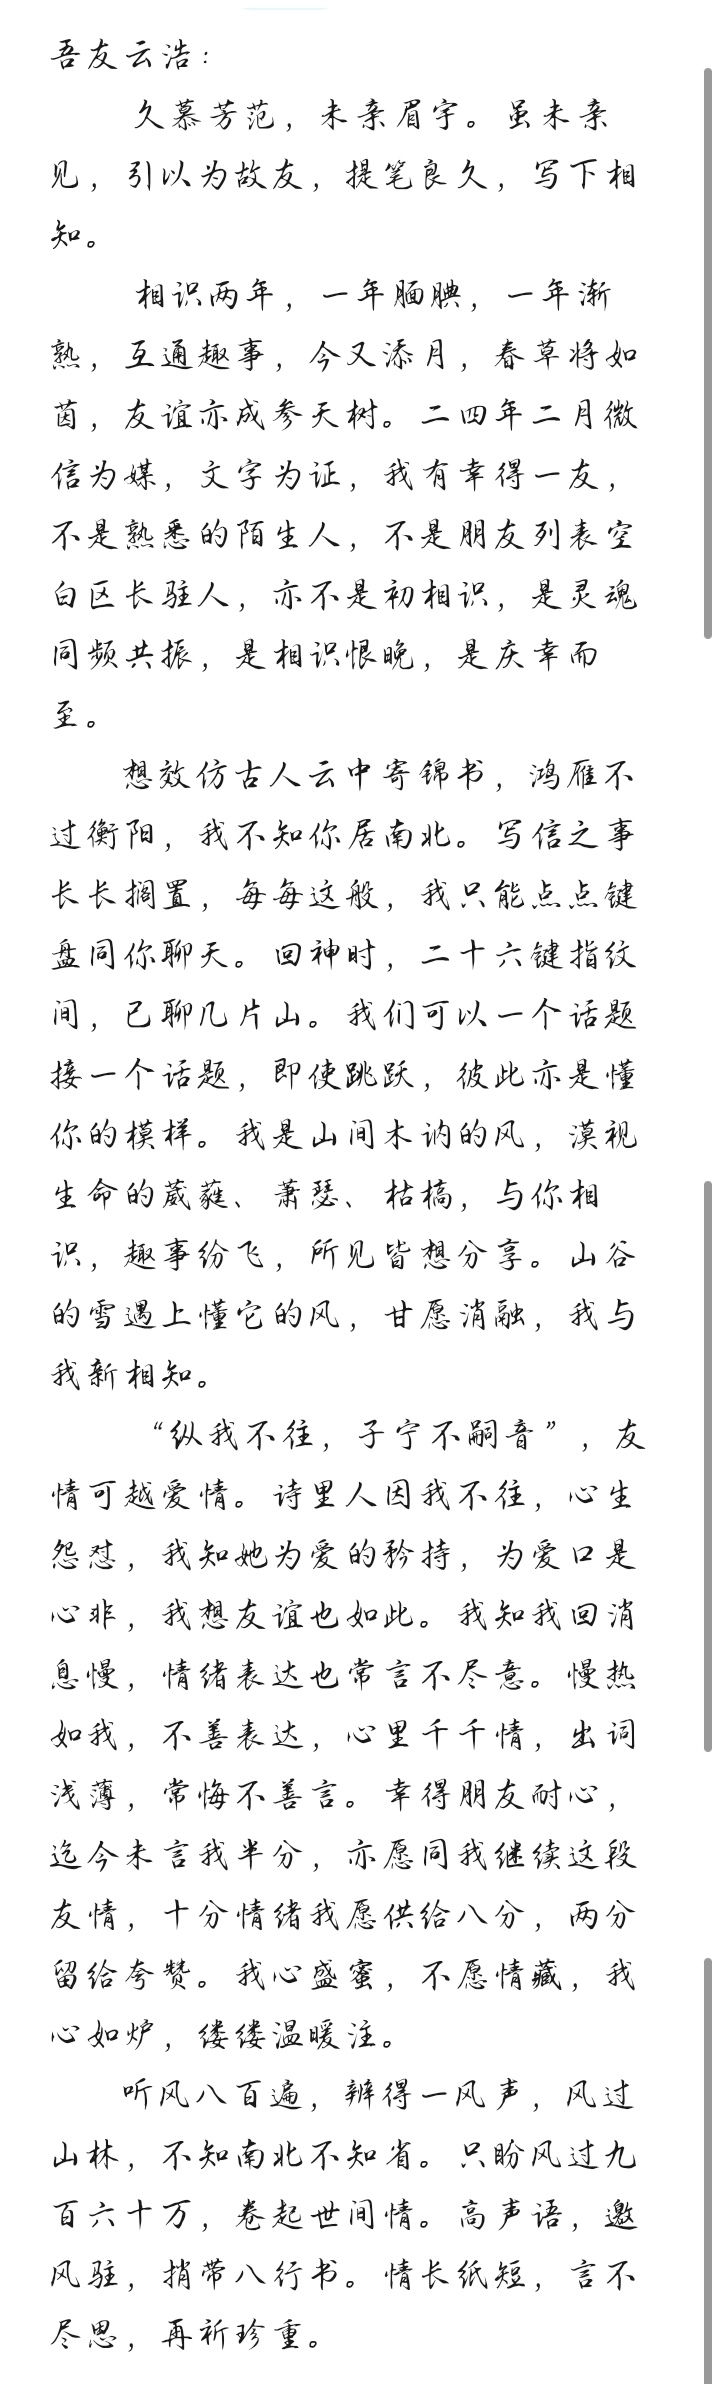 吾友云浩：
久慕芳范，未亲眉宇。虽未亲
见，引以为故友，提笔良久，写下相
知。
相识两年，一年腼腆，一年渐
熟，互通趣事，今又添月，春草将如
茵，友谊亦成参天树。二四年二月微
信为媒，文字为证，我有幸得一友，
不是熟悉的陌生人，不是朋友列表空
白区长驻人，亦不是初相识，是灵魂
同频共振，是相识恨晚，是庆幸而
至。
想效仿古人云中寄锦书，鸿雁不
过衡阳，我不知你居南北。写信之事
长长搁置，每每这般，我只能点点键
盘同你聊天。回神时，二十六键指纹
间，已聊几片山。我们可以一个话题
接一个话题，即使跳跃，彼此亦是懂
你的模样。我是山间木讷的风，漠视
生命的葳蕤、萧瑟、枯槁，与你相
识，趣事纷飞，所见皆想分享。山谷
的雪遇上懂它的风，甘愿消融，我与
我新相知。
“纵我不往，子宁不嗣音”，友
情可越爱情。诗里人因我不往，心生
怨怼，我知她为爱的矜持，为爱口是
心非，我想友谊也如此。我知我回消
息慢，情绪表达也常言不尽意。慢热
如我，不善表达，心里千千情，出词
浅薄，常悔不善言。幸得朋友耐心，
迄今未言我半分，亦愿同我继续这段
友情，十分情绪我愿供给八分，两分
留给夸赞。我心盛蜜，不愿情藏，我
心如炉，缕缕温暖注。
听风八百遍，辨得一风声，风过
山林，不知南北不知省。只盼风过九
百六十万，卷起世间情。高声语，邀
风驻，捎带八行书。情长纸短，言不
尽思，再祈珍重。